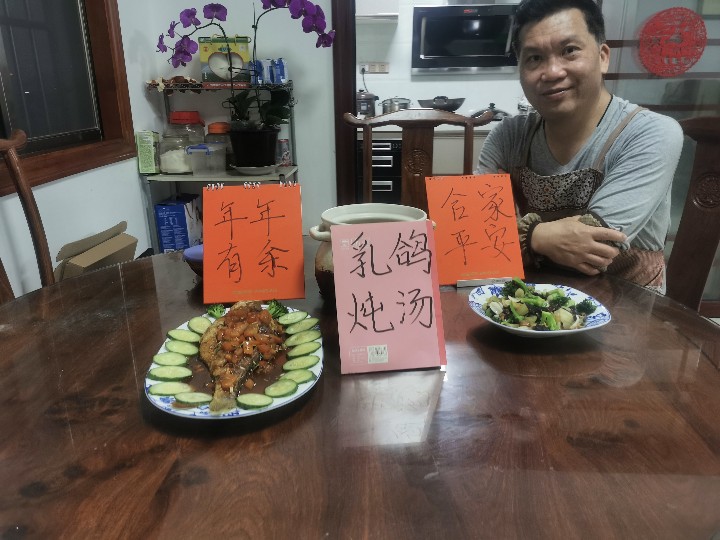 年年
有余
乳鸽
炖汤
合家
平安